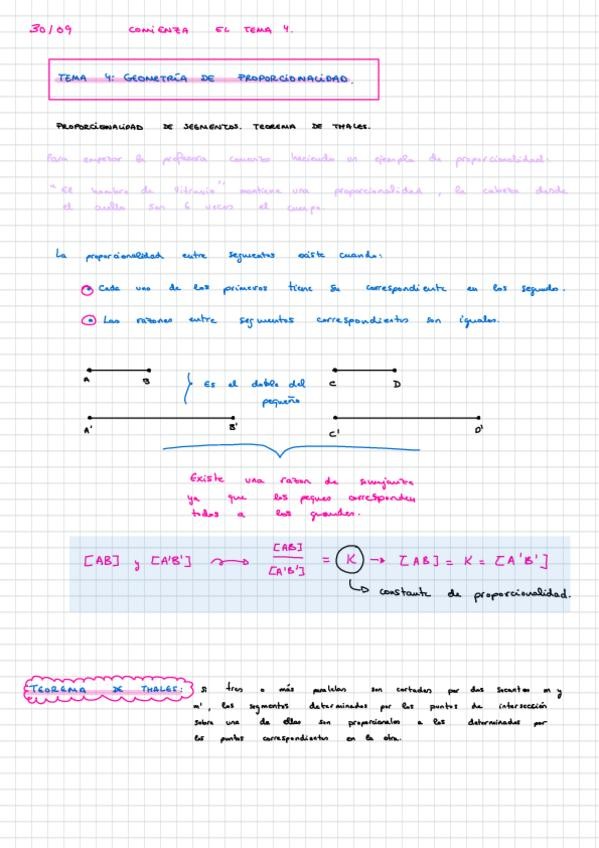 30/09 COMIENZA EL TEMA 4.
TEMA 4: GEOMETRÍA DE PROPORCIONALIDAD.
PROPORCIONALIDAD DE SEGMENTOS. TEOREMA DE THALES.
Para empezar la profesora comenta haciendo un ejemplo de proporcionalidad.
"El hombre de Vitruvio" mantiene una proporcionalidad, la cabeza desde
el cuello son 6 veces el cuerpo.
La proporcionalidad entre segmentos existe cuando:
Cada uno de los primeros tiene su correspondiente en los segundo.
Las razones entre segmentos correspondientes son iguales.
A B Es el doble del C D
pequeño
A' B' C' D'
Existe una razon de semejanza
ya que los peques corresponden
todos a los grandes.
[AB] y [A'B'] → [AB]/[A'B'] = K → [AB] = K = [A'B']
↳ constante de proporcionalidad.
TEOREMA DE THALES: si tres o más paralelas son cortadas por dos secantes m y
m', los segmentos determinados por los puntos de intersección
sobre una de ellas son proporcionales a los determinados por
los puntos correspondientes en la otra.